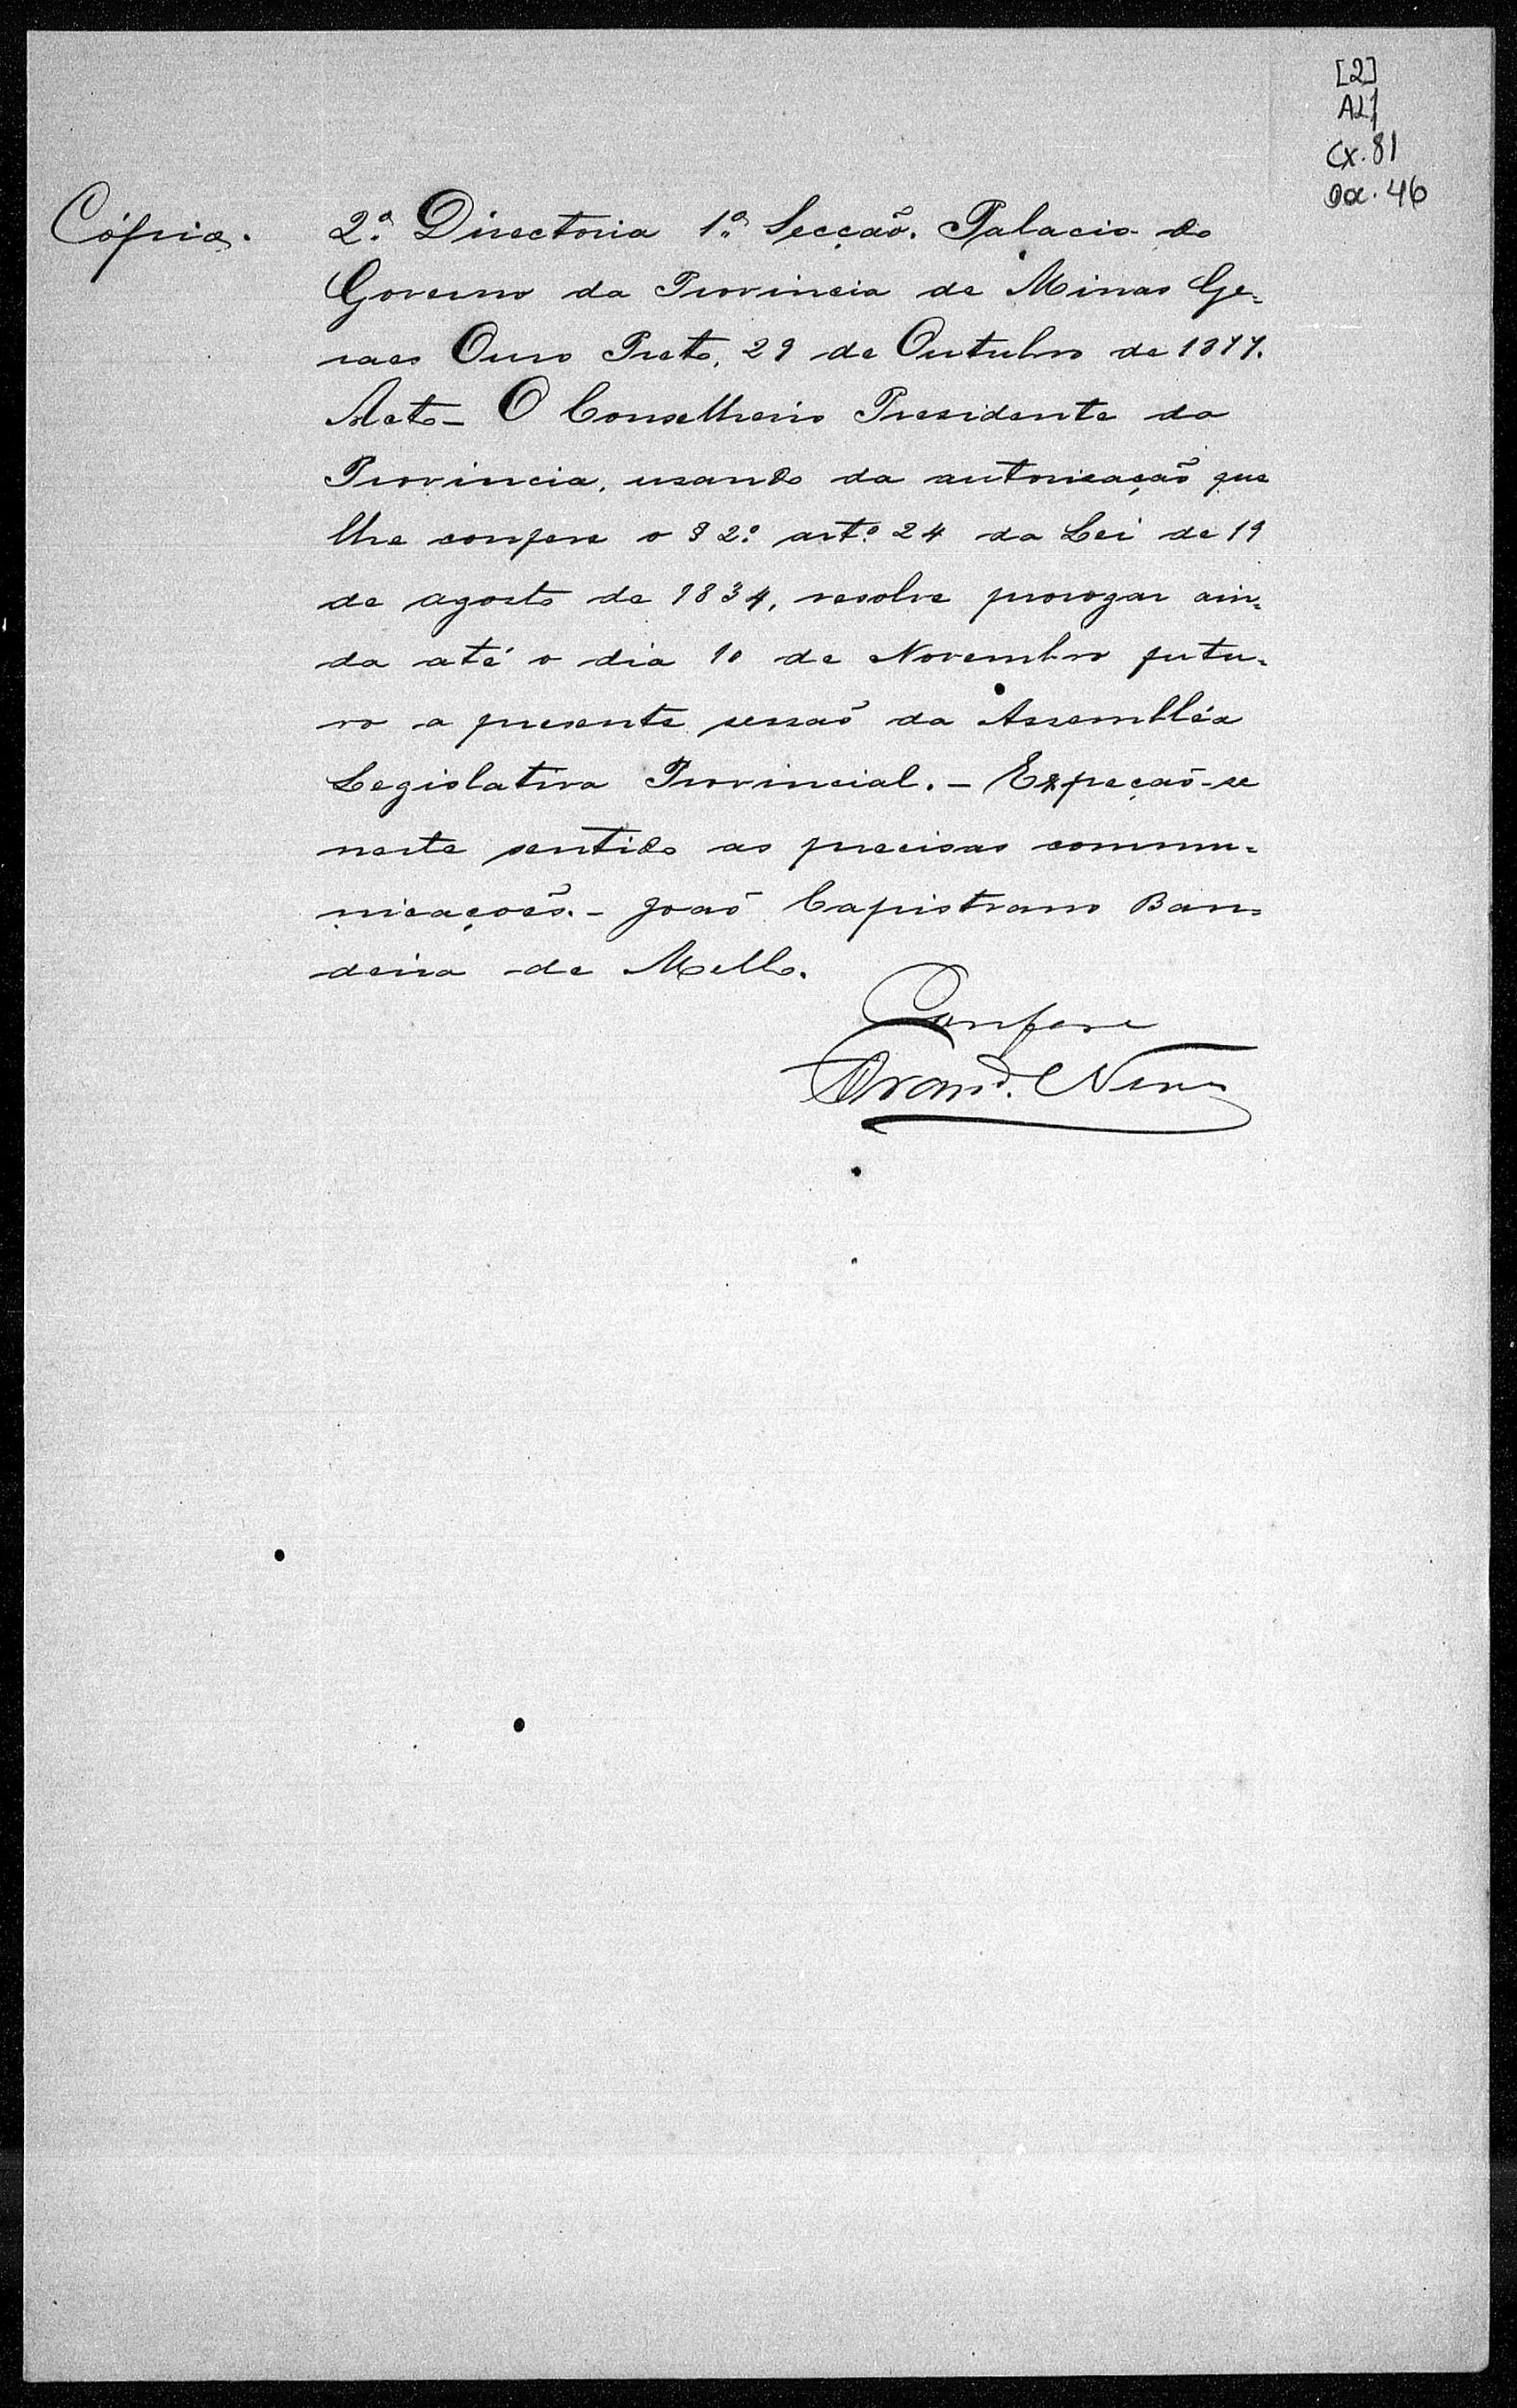 [2]
AL1
Cx. 81
Doc. 46
Cópia.
2.ª Directoria 1.ª Secção. Palacio do
Governo da Provincia de Minas Ge-
raes Ouro Preto, 29 de Outubro de 1877.
Acto - O Conselheiro Presidente da
Provincia, usando da autorisação que
lhe confere o § 2.º art.º 24 da Lei de 19
de agosto de 1834, resolve prorogar ain-
da até o dia 10 de Novembro futu-
ro a presente sessaõ da Assembléa
Legislativa Provincial. - Expeçaõ-se
neste sentido as precisas commu-
nicações. - Joaõ Capistrano Ban-
deira de Mello.
Confere